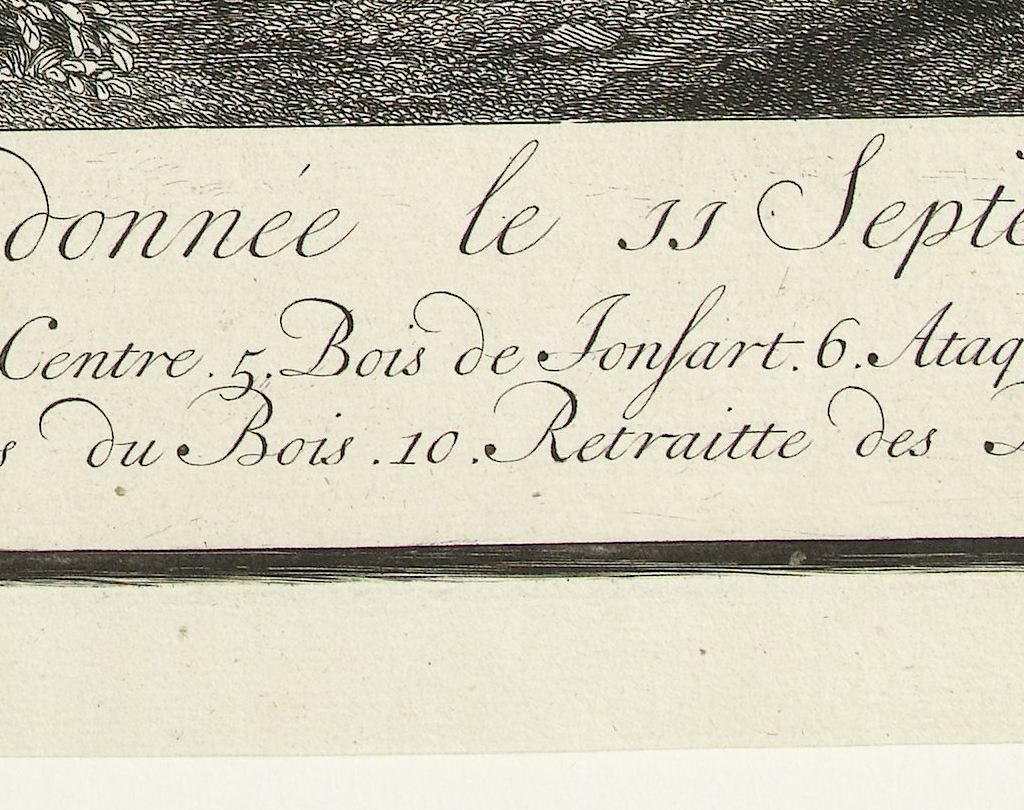 donnée le 11 Septe
Centre. 5. Bois de Jonsart. 6. Ataq
s du Bois. 10. Retraitte des